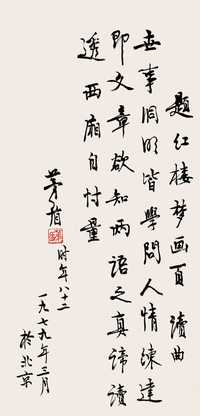 題红楼梦画页 读曲
世事洞明皆學问人情练達
即文章欲知两语之真谛读
透西廂自忖量
茅盾
时年八十三
一九七九年三月
於北京